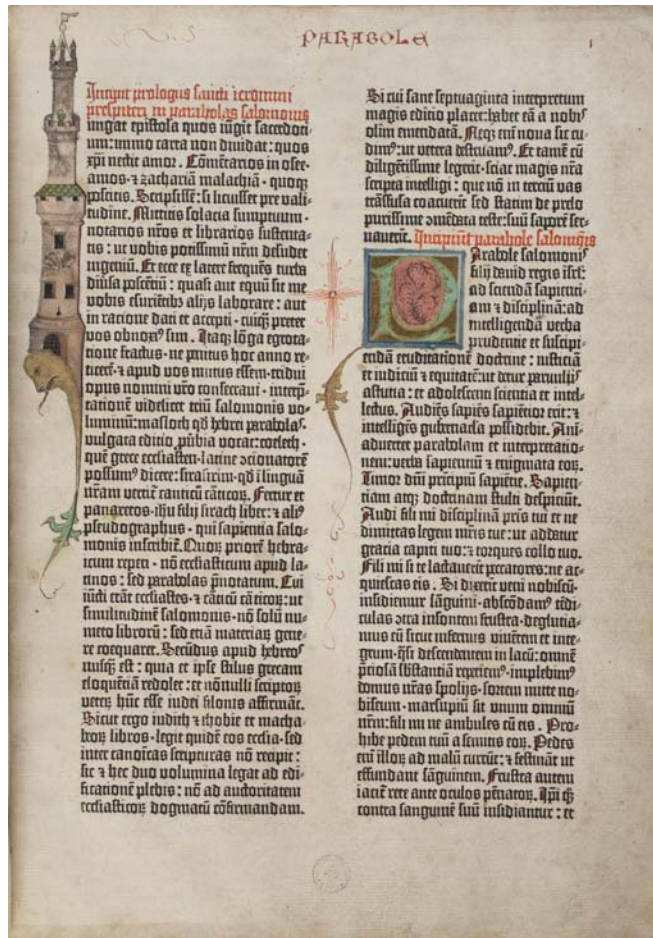 PARABOLE
Incipit prologus sancti ieronimi
presbiteri in parabolas salomonis
ungat epistola quos iũgit sacerdoti-
um: immo carta non diuidat: quos
xp̃i nectit amor. Cõmẽtarios in osee.
amos. ⁊ zachariã malachiã. quoqꝫ
poscitis. Scripsissẽ: si licuisset pre vali-
tudine. Mittitis solacia sumptuum.
notarios nr̃os et librarios sustenta-
tis: ut vobis potissimũ nr̃m desudet
ingeniũ. Et ecce ex latere freques̃ turba
diũsa poscẽtiũ: quasi aut equũ sit me
vobis esuriẽtibꝫ alijs laborare: aut
in racione dati et accepti. cuiqꝫ preter
vos obnoxiꝰ sim. Itaqꝫ lõga egrota-
tione fractus. ne pẽitus hoc anno re-
ticerẽ. ⁊ apud vos mutus essem. tridui
opus nomini vr̃o consecraui. interp̃-
tationẽ videlicet triũ salomonis vo-
luminũ: masloth qđ hebrei parabolaſ.
vulgata editio ꝓũbia vocat: coeleth.
quẽ grece ecclesiasten. latine ↄcionatorẽ
possumꝰ dicere: sirasirim. qđ ĩ linguã
nr̃am vertit̃ canticũ cãticoꝝ. Fertur et
panaretos. ihu filij sirach liber: ⁊ aliꝰ
pseudographus. qui sapientia salo-
monis inscribit̃. Quoꝝ priorẽ hebra-
icum reperi. nõ ecclesiasticum apud la-
tinos: sed parabolas p̃notatum. Cui
iũcti erãt ecclesiastes. ⁊ cãticũ cãticoꝝ: ut
similitudinẽ salomonis. nõ solũ nu-
mero librorũ: sed etiã materiaꝝ gene-
re coequaret. Secũdus apud hebreoſ
nusqꝫ est: quia et ipse stilus grecam
eloquẽtiã redolet: et nõnulli scriptoꝝ
veteꝝ hũc esse iudei filonis affirmãt.
Sicut ergo iudith ⁊ thobie et macha-
beoꝝ libros. legit quidẽ eos ecclesia. sed
inter canoĩcas scripturas nõ recipit:
sic ⁊ hec duo volumina legat ad edi-
ficationẽ plebis: nõ ad auctoritatem
ecclesiasticoꝝ dogmatũ cõfirmandam.
Si cui sane septuaginta interpretum
magis editio placet: habet eã a nobiſ
olim emendatã. Neqꝫ eñ noua sic cu-
dimꝰ: ut vetera destruamꝰ. Et tamẽ cũ
diligẽtissime legerit. sciat magis nr̃a
scripta intelligi: que nõ in terciũ vas
trãsfusa coacuerĩt: sed statim de prelo
purissime ↄmẽdata teste: suũ saporẽ ser-
uauerit. Incipiunt parabole salomõis
Parabole salomoniſ
filij dauid regis isrl̃:
ad sciendã sapienti-
am ⁊ disciplinã: ad
intelligendã verba
prudentie et suscipi-
endã eruditationẽ doctrine: iusticiã
et iudiciũ ⁊ equitatẽ: ut detur paruuliſ
astutia: et adolescenti scientia et intel-
lectus. Audiẽs sapiẽs sapiẽtior erit: ⁊
intelligẽs gubernacla possidebit. Ani-
aduertet parabolam et interpretatio-
nem: verba sapientiũ ⁊ enigmata eoꝝ.
Timor dñi principiũ sapiẽtie. Sapien-
tiam atqꝫ doctrinam stulti despiciũt.
Audi fili mi disciplinã pr̃is tui et ne
dimittas legem mr̃is tue: ut addatur
gracia capiti tuo: ⁊ torques collo tuo.
Fili mi si te lactauerit peccatores: ne ac-
quiescas eis. Si dixerit veni nobiscũ.
insidiemur sãguini. abscõdamꝰ tẽdi-
culas ↄtra insontem frustra. deglutia-
mus eũ sicut infernus viuẽtem et inte-
grum. q̃si descendentem in lacũ: omnẽ
p̃ciosã sbstantiã reperiemꝰ. implebimꝰ
domus nr̃as spolijs. sortem mitte no-
biscum. marsupiũ sit vnum omniũ
nr̃m: fili mi ne ambules cũ eis. Pro-
hibe pedem tuũ a semitis eoꝝ. Pedes
eñ illoꝝ ad malũ currũt: ⁊ festinãt ut
effundant sãguinem. Frustra autem
iacit̃ rete ante oculos pẽnatoꝝ. Ip̃i qꝫ
contra sanguinẽ suũ insidiantur: et